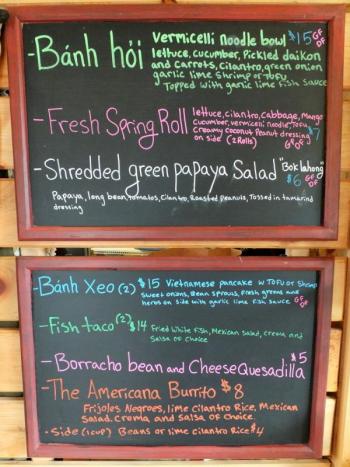 -Bánh hỏi vermicelli noodle bowl $15 GF DF
lettuce, cucumber, Pickled daikon
and carrots, cilantro, green onion
garlic lime shrimp or Tofu
Topped with garlic lime fish sauce
-Fresh Spring Roll lettuce, cilantro, cabbage, Mango
cucumber, vermicelli noodle, Tofu
creamy coconut Peanut dressing $7
on side (2 Rolls) GF DF
-Shredded green papaya Salad "Bok lahong"
$6 GF DF
Papaya, long bean, tomatos, Cilantro, Roasted Peanuts, Tossed in tamarind
dressing
-Bánh Xeo (2) $15 Vietnamese pancake w Tofu or Shrimp
sweet onions, Bean sprouts, fresh greens and
herbs on side with garlic lime fish sauce GF DF
-Fish taco (2) $14 Fried White Fish, Mexican Salad, Crema and
Salsa of choice
-Borracho bean and Cheese Quesadilla $5
-The Americana Burrito $8
Frijoles Negroes, lime Cilantro Rice, Mexican
Salad, Crema and Salsa of Choice
-Side (1 cup) Beans or lime cilantro Rice $4